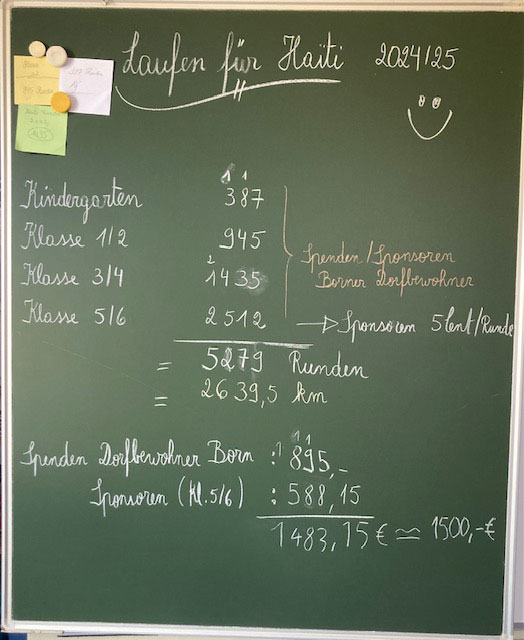 Laufen für Haiti 2024/25
1 1
Kindergarten 387
Klasse 1/2 945
2
Klasse 3/4 1435
Klasse 5/6 2512
Spenden/Sponsoren
Borner Dorfbewohner
→ Sponsoren 5 Cent/Runde
= 5279 Runden
= 2639,5 km
1 1 1
Spenden Dorfbewohner Born : 895,-
Sponsoren (Kl. 5/6) : 588,15
1483,15 € ≃ 1500,-€